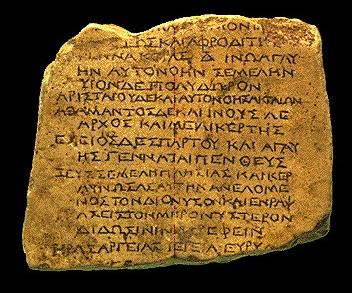 ΩΣΚΑΙΑΦΡΟΔΙΤΗΣ
Δ ΙΝΩΑΓΑΥ
ΗΝ ΑΥΤΟΝΟΗΝ ΣΕΜΕΛΗΝ
ΥΙΟΝΔΕΠΟΛΥΔΩΡΟΝ
ΑΡΙΣΤΑΙΟΥΔΕΚΑΙΑΥΤΟΝΟΗΣΑΚΤΑΙΩΝ
ΑΘΑΜΑΝΤΟΣΔΕΚΑΙΙΝΟΥΣΛΕ
ΑΡΧΟΣ ΚΑΙΜΕΛΙΚΕΡΤΗΣ
ΕΧΕΙΟΣΔΕΣΠΑΡΤΟΥ ΚΑΙ ΑΓΑΥ
ΗΣΓΕΝΝΑΤΑΙΠΕΝΘΕΥΣ
ΖΕΥΣΣΕΜΕΛΗΙΠΛΗΣΙΑΣΚΑΙΚΕΡ
ΑΥΝΩΣΑΣΑΥΤΗΝΑΝΕΛΟΜΕ
ΝΟΣΤΟΝΔΙΟΝΥΣΟΝΚΑΙΕΝΡΑΨ
ΑΣΕΙΣΤΟΝΜΗΡΟΝΥΣΤΕΡΟΝ
ΔΙΔΩΣΙΝΙΝΟΙΤΡΕΦΕΙΝ
ΗΡΑΣΑΡΓΕΙΑΣΙΕΡΕΙΑΕΥΡΥ